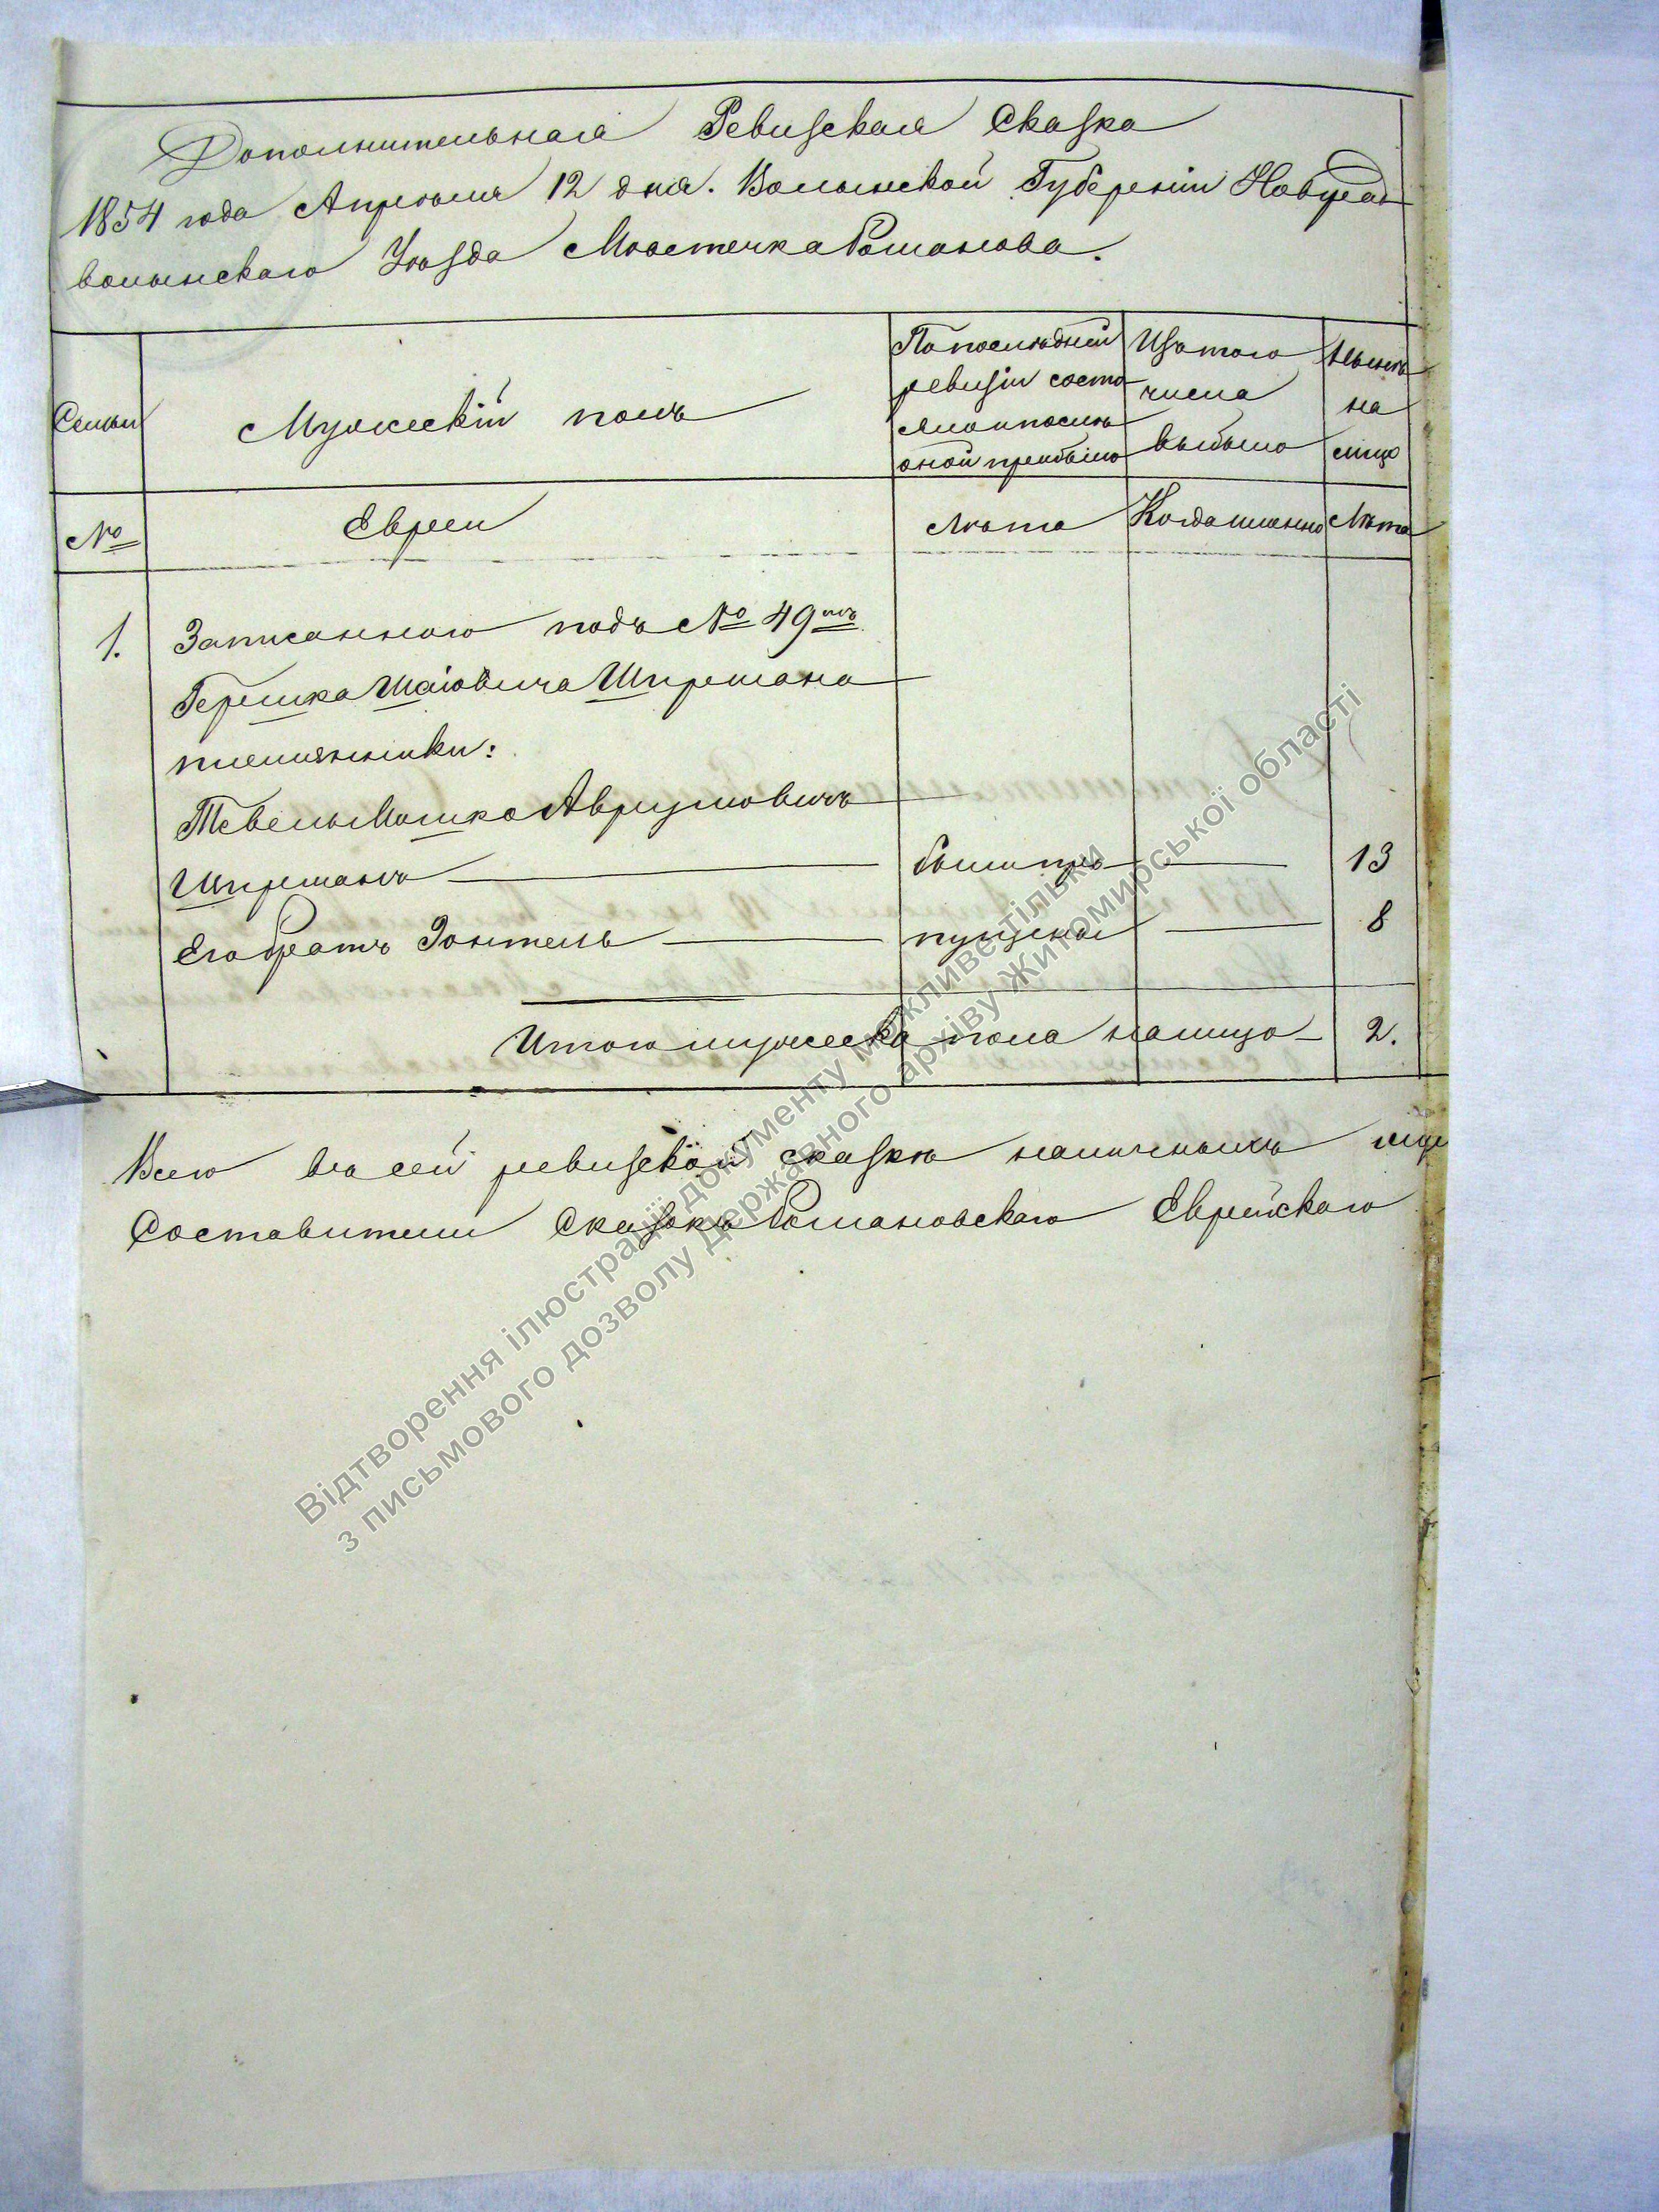 Дополнительная Ревизская Сказка
1854 года Апреля 12 дня. Волынской Губерніи Новград
волынскаго Уѣзда Мѣстечка Романова.
Семьи
Мужескій полъ
По послѣдней
ревизіи состо
яло и послѣ
оной прибыло
Изъ того
числа
выбыло
Нынѣ
на
лицо
№
Евреи
Лѣта
Когда именно
Лѣта
1.
Записаннаго подъ № 49мъ
Гершка Шаіовича Шпремана
племянники:
Тевель Мошко Аврумовичъ
Шпреманъ
были про
13
Его братъ Зонтель
пущены
8
Итого мужеска пола налицо
2.
Всего въ сей ревизской сказкѣ наличныхъ
Составители Сказокъ Романовскаго Еврейскаго
Відтворення ілюстрації документу можливе тільки
з письмового дозволу Державного архіву Житомирської області